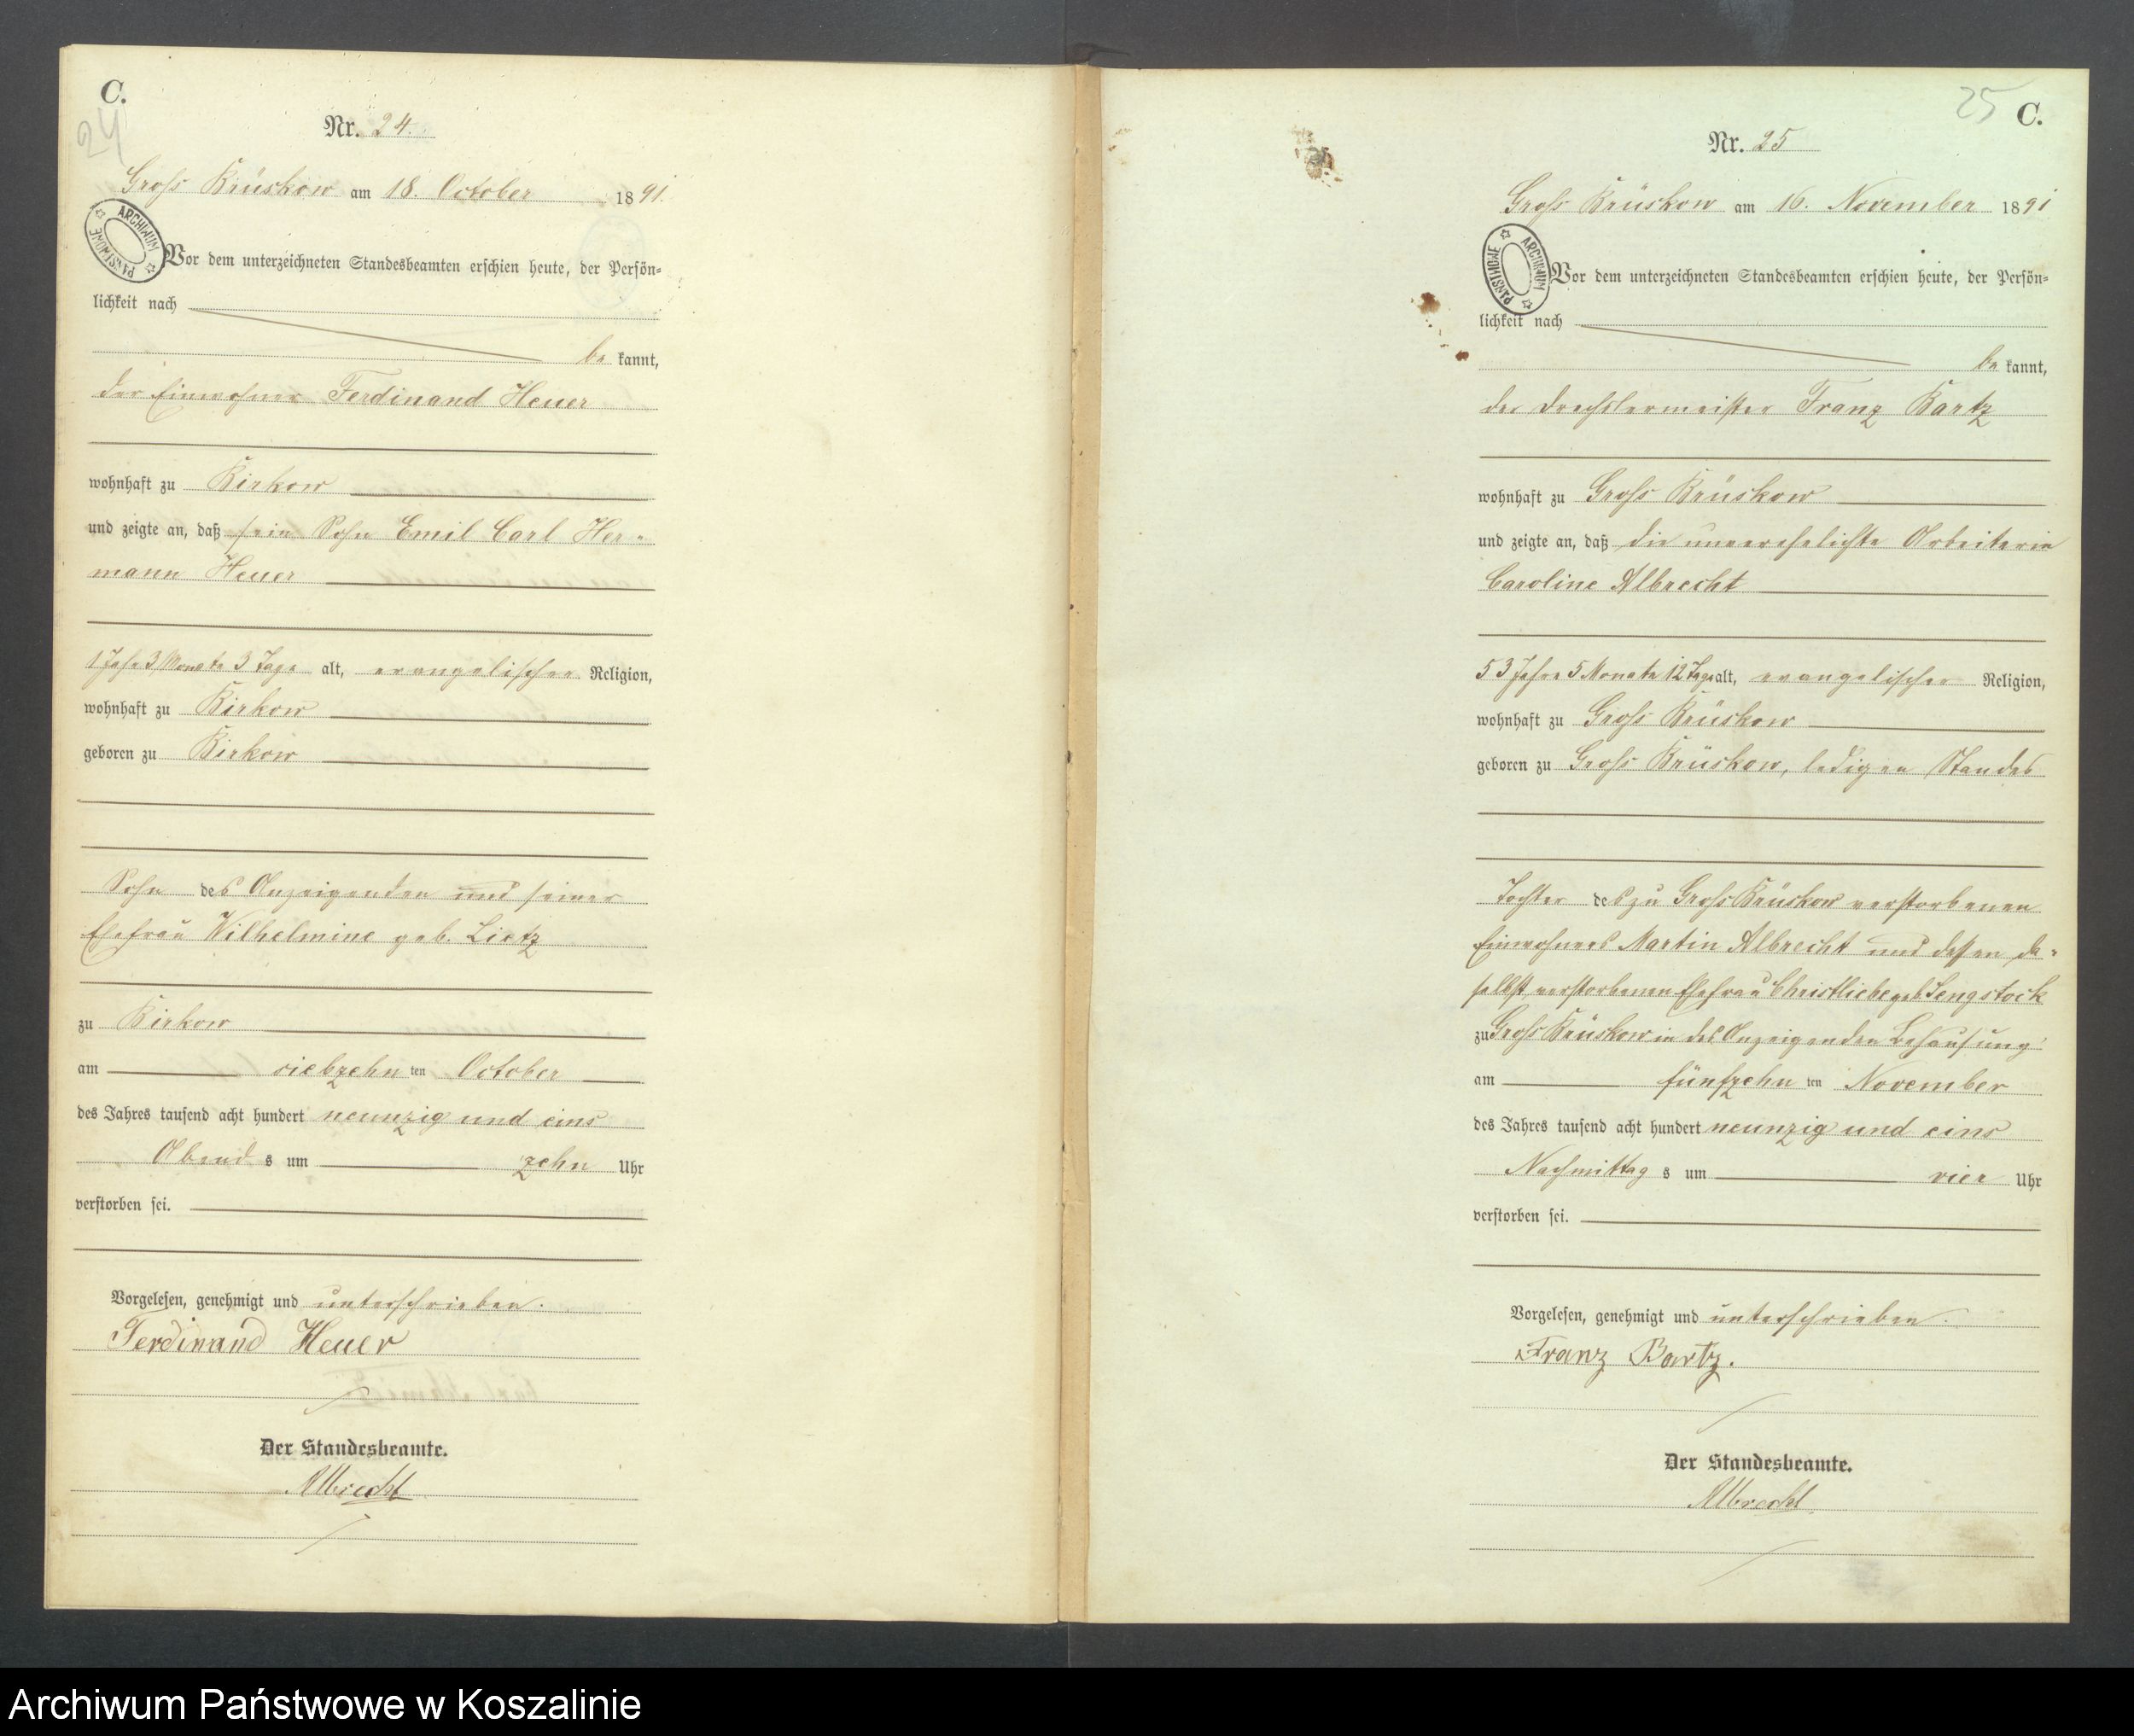 C.
24
Nr. 24.
Groß Brüskow am 18. October 1891.
ARCHIWUM PAŃSTWOWE
Vor dem unterzeichneten Standesbeamten erschien heute, der Persön-
lichkeit nach
bekannt,
der Einwohner Ferdinand Heuer
wohnhaft zu Birkow
und zeigte an, daß sein Sohn Emil Carl Her-
mann Heuer
1 Jahr 3 Monate 3 Tage alt, evangelischer Religion,
wohnhaft zu Birkow
geboren zu Birkow
Sohn des Anzeigenden und seiner
Ehefrau Wilhelmine geb. Lietz
zu Birkow
am siebzehnten October
des Jahres tausend acht hundert neunzig und eins
Abends um zehn Uhr
verstorben sei.
Vorgelesen, genehmigt und unterschrieben.
Ferdinand Heuer
Der Standesbeamte.
Albrecht
25 C.
Nr. 25
Groß Brüskow am 16. November 1891
ARCHIWUM PAŃSTWOWE
Vor dem unterzeichneten Standesbeamten erschien heute, der Persön-
lichkeit nach
bekannt,
der Drechslermeister Franz Bartz
wohnhaft zu Groß Brüskow
und zeigte an, daß die unverehelichte Arbeiterin
Caroline Albrecht
53 Jahre 5 Monate 12 Tage alt, evangelischer Religion,
wohnhaft zu Groß Brüskow
geboren zu Groß Brüskow, ledigen Standes
Tochter des zu Groß Brüskow verstorbenen
Einwohners Martin Albrecht und dessen da-
selbst verstorbenen Ehefrau Christliebe geb. Sengstock
zu Groß Brüskow in des Anzeigenden Behausung
am fünfzehnten November
des Jahres tausend acht hundert neunzig und eins
Nachmittags um vier Uhr
verstorben sei.
Vorgelesen, genehmigt und unterschrieben.
Franz Bartz.
Der Standesbeamte.
Albrecht
Archiwum Państwowe w Koszalinie